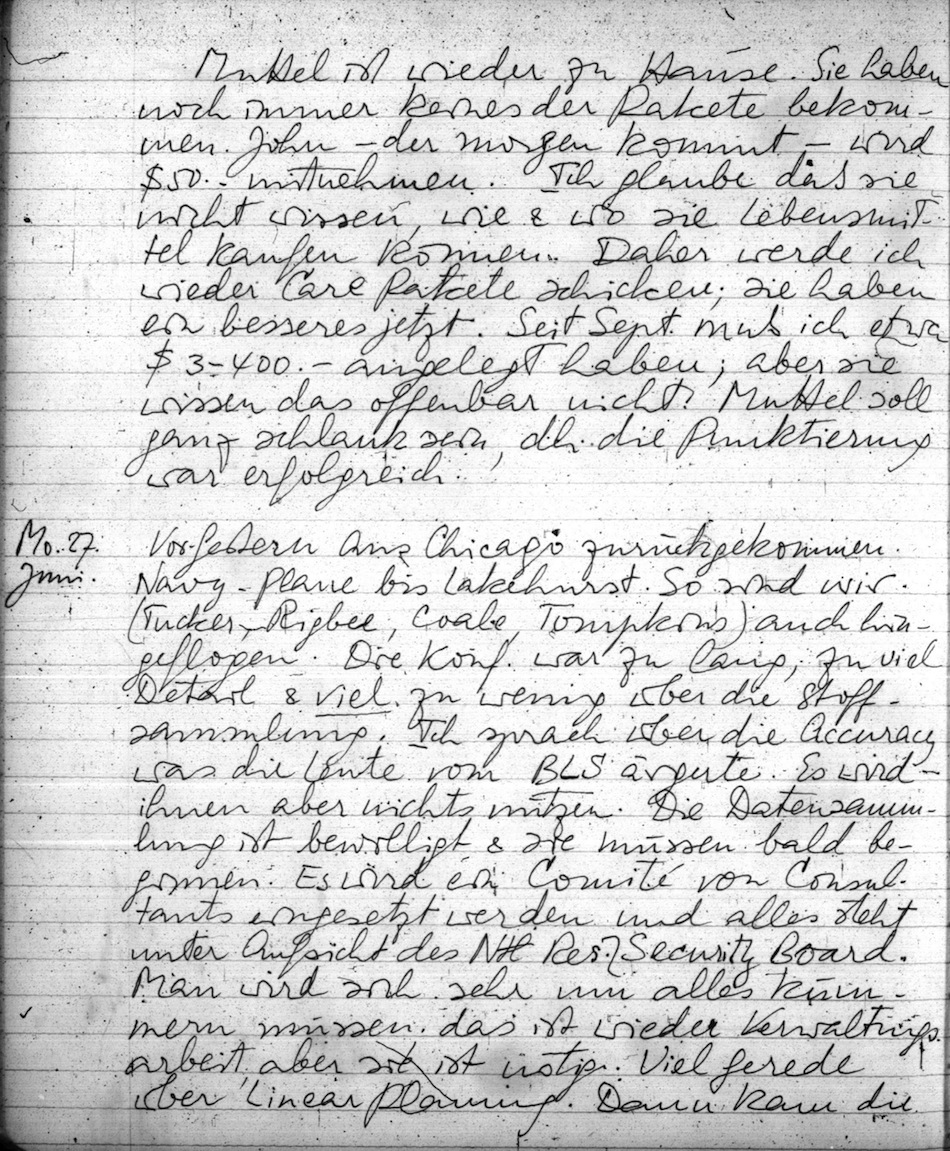 Muttel ist wieder zu Hause. Sie haben
noch immer keines der Pakete bekom-
men. John – der morgen kommt – wird
$50.- mitnehmen. Ich glaube daß sie
nicht wissen, wie & wo sie Lebensmit-
tel kaufen können. Daher werde ich
wieder Care Pakete schicken; sie haben
ein besseres jetzt. Seit Sept. muß ich etwa
$ 3-400.- angelegt haben; aber sie
wissen das offenbar nicht! Muttel soll
ganz schlank sein, dh. die Punktierung
war erfolgreich.
Mo. 27. Vorgestern aus Chicago zurückgekommen.
Juni. Navy-plane bis Lakehurst. So sind wir
(Tucker, Rigbee, Coale, Tompkins) auch hin-
geflogen. Die Konf. war zu lang, zu viel
Detail & viel zu wenig über die Stoff-
sammlung. Ich sprach über die Accuracy
was die Leute vom BLS ärgerte. Es wird
ihnen aber nichts nützen. Die Datensamm-
lung ist bewilligt & sie müssen bald be-
ginnen. Es wird ein Comité von Consul-
tants eingesetzt werden und alles steht
unter Aufsicht des Ntl Res. Security Board.
Man wird sich sehr um alles küm-
mern müssen. das ist wieder Verwaltungs-
arbeit, aber sie ist nötig. Viel Gerede
über Linear Planning. Dann kam die